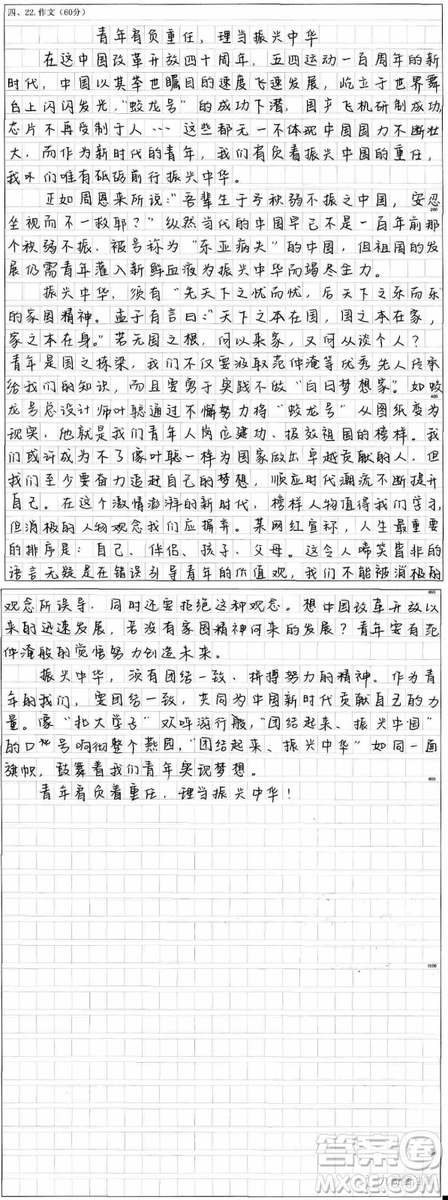 四、22.作文（60分）
青年肩负重任，理当振兴中华
在这中国改革开放四十周年，五四运动一百周年的新
时代，中国以其举世瞩目的速度飞速发展，屹立于世界舞
台上闪闪发光，“蛟龙号”的成功下潜，国产飞机研制成功
芯片不再受制于人……这些都无一不体现中国国力不断壮
大，而作为新时代的青年，我们肩负着振兴中国的重任，
我们唯有砥砺前行振兴中华。
正如周恩来所说：“吾辈生于号称弱不振之中国，安忍
坐视而不一救耶？”纵然当代的中国早已不是一百年前那
个积弱不振、被号称为“东亚病夫”的中国，但祖国的发
展仍需青年落入新鲜血液为振兴中华而竭尽全力。
200
振兴中华，须有“先天下之忧而忧，后天下之乐而乐”
的家国精神。孟子有言曰：“天下之本在国，国之本在家，
家之本在身。”若无国之根，何以来家，又何从谈个人？
青年是国之栋梁，我们不仅要汲取范仲淹等优秀先人传承
给我们的知识，而且要勇于实践不做“白日梦想家”。如蛟
400
龙号总设计师叶聪通过不懈努力将“蛟龙号”从图纸变为
现实，他就是我们青年人岗位建功、报效祖国的榜样。我
们或许成为不了像叶聪一样为国家做出卓越贡献的人，但
我们至少要奋力追赶自己的梦想，顺应时代潮流不断提升
自己。在这个激情澎湃的新时代，榜样人物值得我们学习，
但消极的人物观念我们应摒弃。某网红宣称，人生最重要
的排序是：自己、伴侣、孩子、父母。这令人啼笑皆非的
语言无疑是在错误引导青年的价值观，我们不能被消极的
600
观念所误导，同时还要拒绝这种观念。想中国改革开放以
来的迅速发展，若没有家国精神何来的发展？青年要有范
仲淹般的觉悟努力创造未来。
振兴中华，须有团结一致、拼搏努力的精神。作为青
年的我们，要团结一致，共同为中国新时代贡献自己的力
量。像“北大学子”欢呼游行般，“团结起来、振兴中国”
的口号响彻整个燕园，“团结起来、振兴中华”如同一面
旗帜，鼓舞着我们青年奥说梦想。
800
青年肩负着重任，理当振兴中华！
1000
答案圈
MXQE.COM